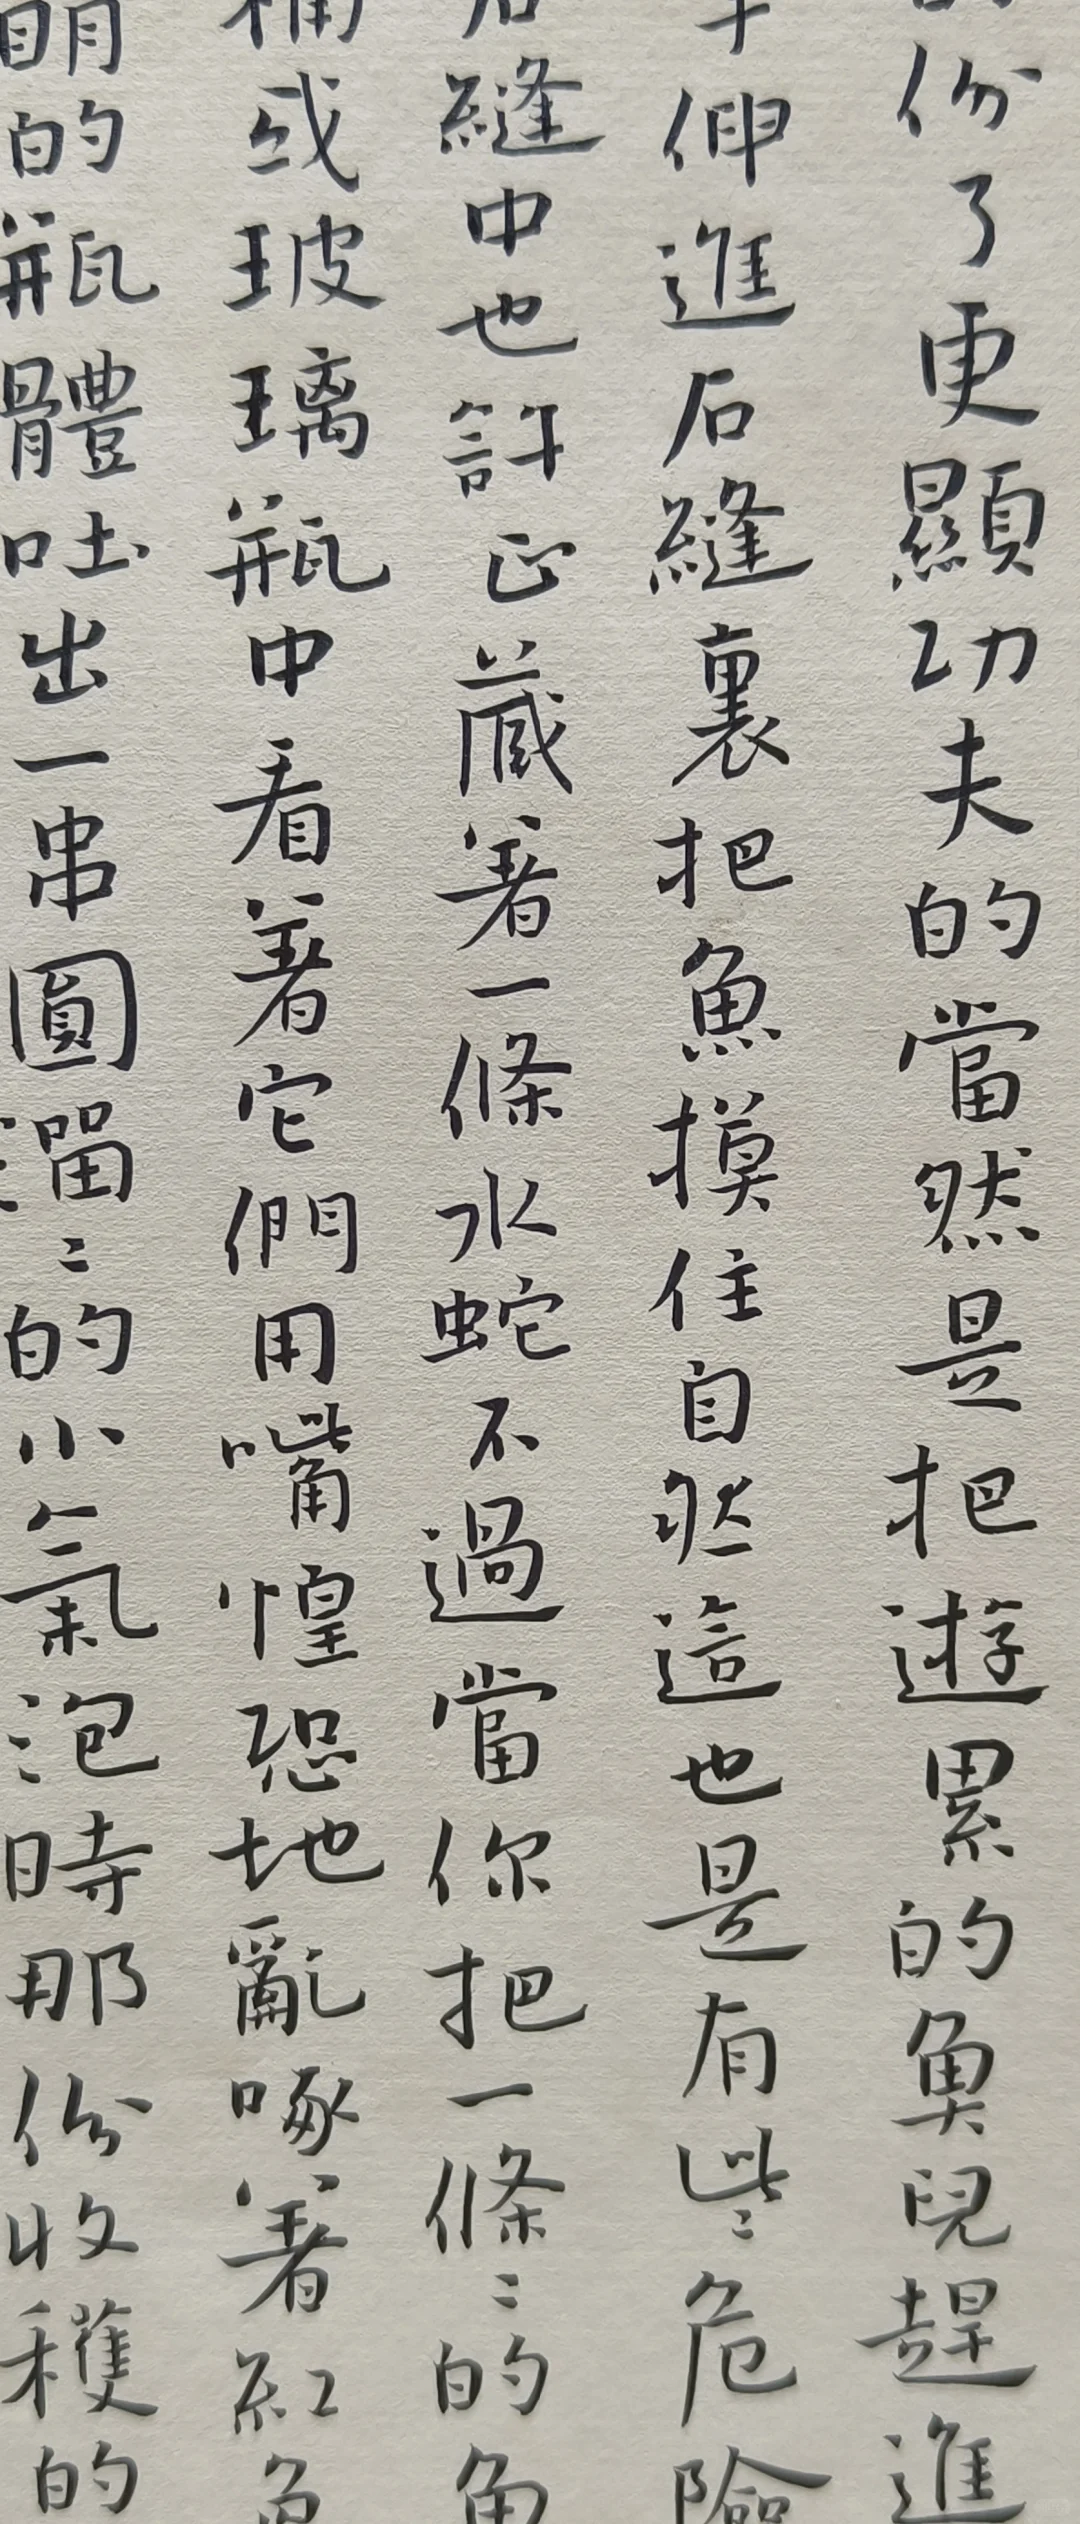 份了更顯功夫的當然是把遊累的魚兒趕進
伸進石縫裏把魚摸住自然這也是有些〻危險
石縫中也許正藏著一條水蛇不過當你把一條〻的魚
桶或玻璃瓶中看著它們用嘴惶恐地亂啄著紅魚
明的瓶體吐出一串圓溜〻的小氣泡時那份收穫的